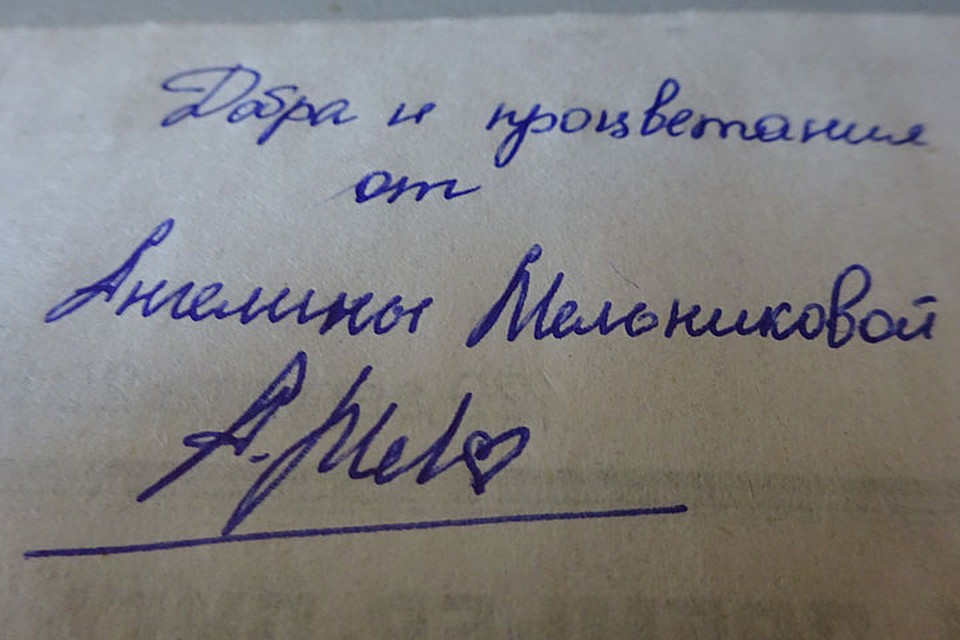 Добра и процветания
от
Ангелины Мельниковой
А. Мел